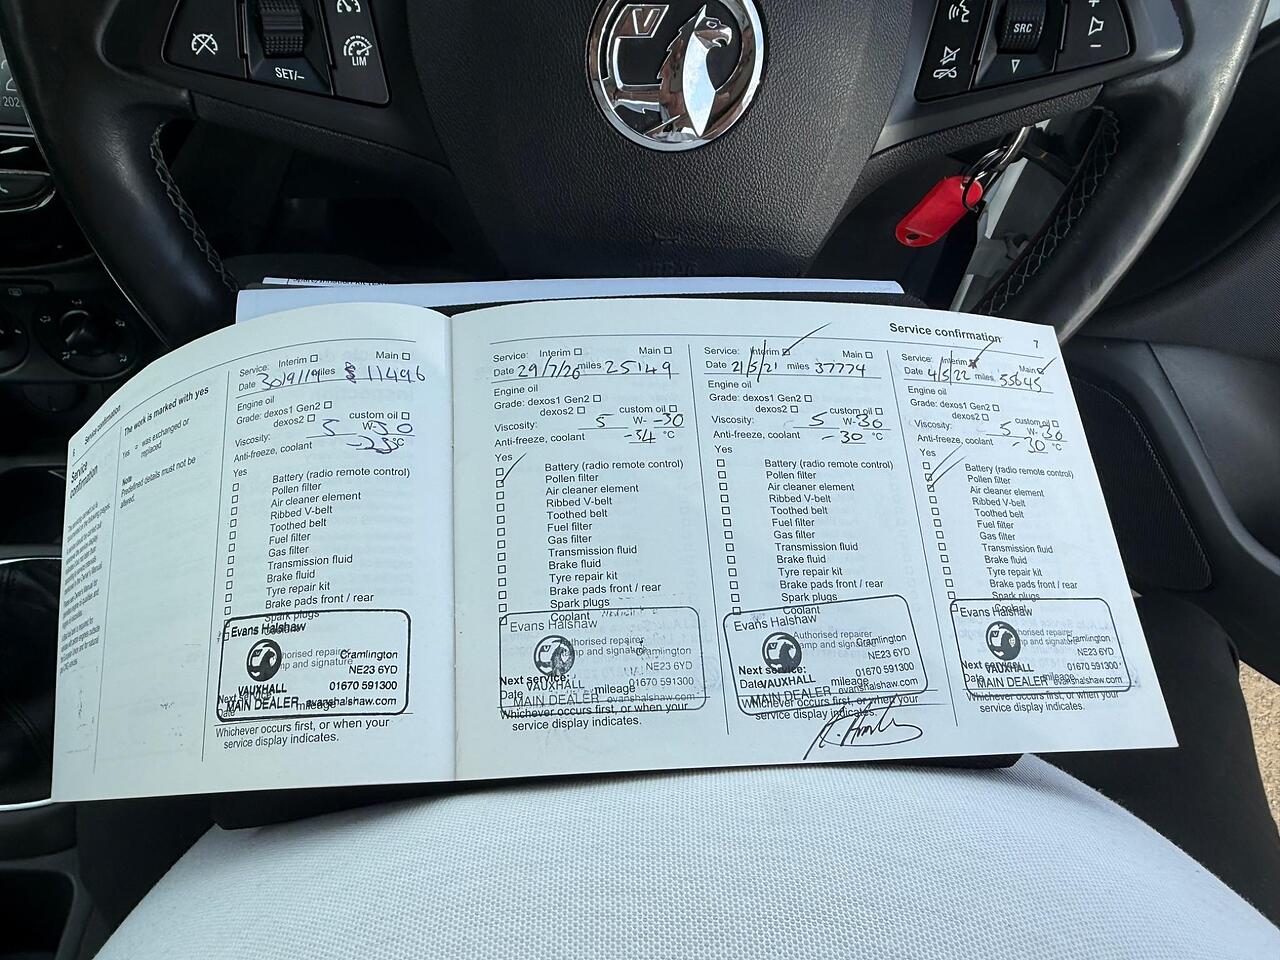 SET/–
LIM
SRC
6
Service confirmation
Service
confirmation
The work is marked with yes
Yes = was exchanged or
replaced
Note
Predefined details must not be
altered.
Service: Interim ☐ Main ☐
Date 30/9/19 miles 11496
Engine oil
Grade: dexos1 Gen2 ☐
dexos2 ☐ custom oil ☐
Viscosity: 5 W-30
Anti-freeze, coolant -25°C
Yes
☐ Battery (radio remote control)
☐ Pollen filter
☐ Air cleaner element
☐ Ribbed V-belt
☐ Toothed belt
☐ Fuel filter
☐ Gas filter
☐ Transmission fluid
☐ Brake fluid
☐ Tyre repair kit
☐ Brake pads front / rear
☐ Spark plugs
☐ Coolant
Evans Halshaw
Cramlington
NE23 6YD
VAUXHALL 01670 591300
MAIN DEALER evanshalshaw.com
Next service:
Date mileage
Whichever occurs first, or when your
service display indicates.
Service confirmation 7
Service: Interim ☐ Main ☐
Date 29/7/20 miles 25149
Engine oil
Grade: dexos1 Gen2 ☐
dexos2 ☐ custom oil ☐
Viscosity: 5 W-30
Anti-freeze, coolant -34 °C
Yes
☐ Battery (radio remote control)
☑ Pollen filter
☐ Air cleaner element
☐ Ribbed V-belt
☐ Toothed belt
☐ Fuel filter
☐ Gas filter
☐ Transmission fluid
☐ Brake fluid
☐ Tyre repair kit
☐ Brake pads front / rear
☐ Spark plugs
☐ Coolant
Evans Halshaw
Authorised repairer
stamp and signature
Cramlington
NE23 6YD
VAUXHALL 01670 591300
MAIN DEALER evanshalshaw.com
Next service:
Date mileage
Whichever occurs first, or when your
service display indicates.
Service: Interim ☑ Main ☐
Date 21/5/21 miles 37774
Engine oil
Grade: dexos1 Gen2 ☐
dexos2 ☐ custom oil ☐
Viscosity: 5 W-30
Anti-freeze, coolant -30 °C
Yes
☐ Battery (radio remote control)
☐ Pollen filter
☐ Air cleaner element
☐ Ribbed V-belt
☐ Toothed belt
☐ Fuel filter
☐ Gas filter
☐ Transmission fluid
☐ Brake fluid
☐ Tyre repair kit
☐ Brake pads front / rear
☐ Spark plugs
☐ Coolant
Evans Halshaw
Authorised repairer
stamp and signature
Cramlington
NE23 6YD
VAUXHALL 01670 591300
MAIN DEALER evanshalshaw.com
Next service:
Date mileage
Whichever occurs first, or when your
service display indicates.
Service: Interim ☐ Main ☑
Date 4/5/22 miles 55645
Engine oil
Grade: dexos1 Gen2 ☐
dexos2 ☐ custom oil ☐
Viscosity: 5 W-30
Anti-freeze, coolant -30 °C
Yes
☐ Battery (radio remote control)
☑ Pollen filter
☑ Air cleaner element
☐ Ribbed V-belt
☐ Toothed belt
☐ Fuel filter
☐ Gas filter
☐ Transmission fluid
☐ Brake fluid
☐ Tyre repair kit
☐ Brake pads front / rear
☐ Spark plugs
☐ Coolant
Evans Halshaw
Authorised repairer
stamp and signature
Cramlington
NE23 6YD
VAUXHALL 01670 591300
MAIN DEALER evanshalshaw.com
Next service:
Date mileage
Whichever occurs first, or when your
service display indicates.